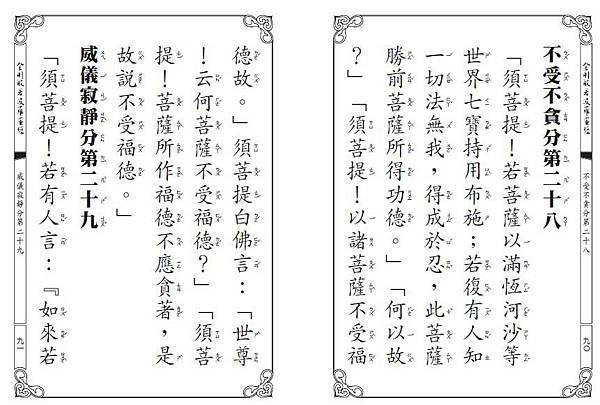 金剛般若波羅蜜經
不受不貪分第二十八
九〇
不受不貪分第二十八
「須菩提！若菩薩以滿恆河沙等
世界七寶持用布施；若復有人知
一切法無我，得成於忍，此菩薩
勝前菩薩所得功德。」「何以故
？」「須菩提！以諸菩薩不受福
德故。」須菩提白佛言：「世尊
！云何菩薩不受福德？」「須菩
提！菩薩所作福德不應貪著，是
故說不受福德。」
威儀寂靜分第二十九
「須菩提！若有人言：『如來若
金剛般若波羅蜜經
威儀寂靜分第二十九
九一